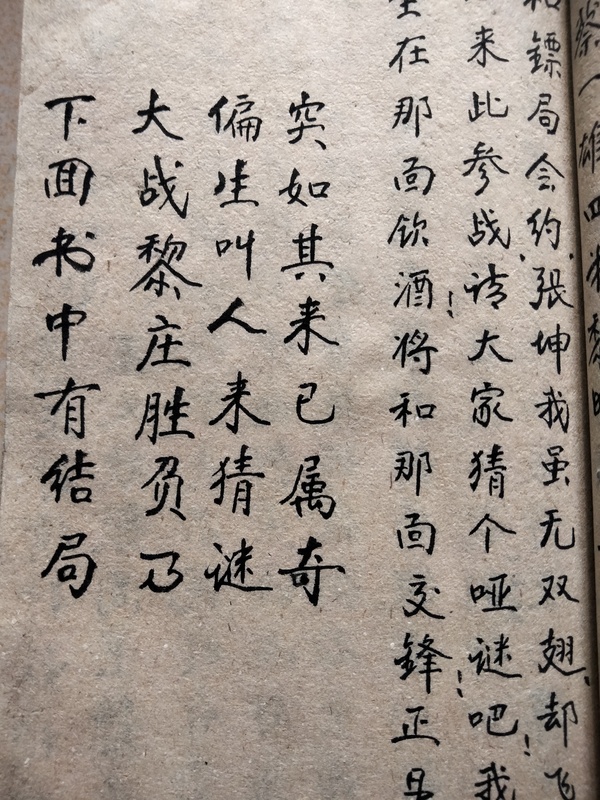 蔡人雄四
和镖局会约，张坤我虽无双翅，却飞
来此参战，请大家猜个哑谜吧！我
在那面饮酒！将和那面交锋！正是
突如其来已属奇
偏生叫人来猜谜
大战黎庄胜负乃
下面书中有结局